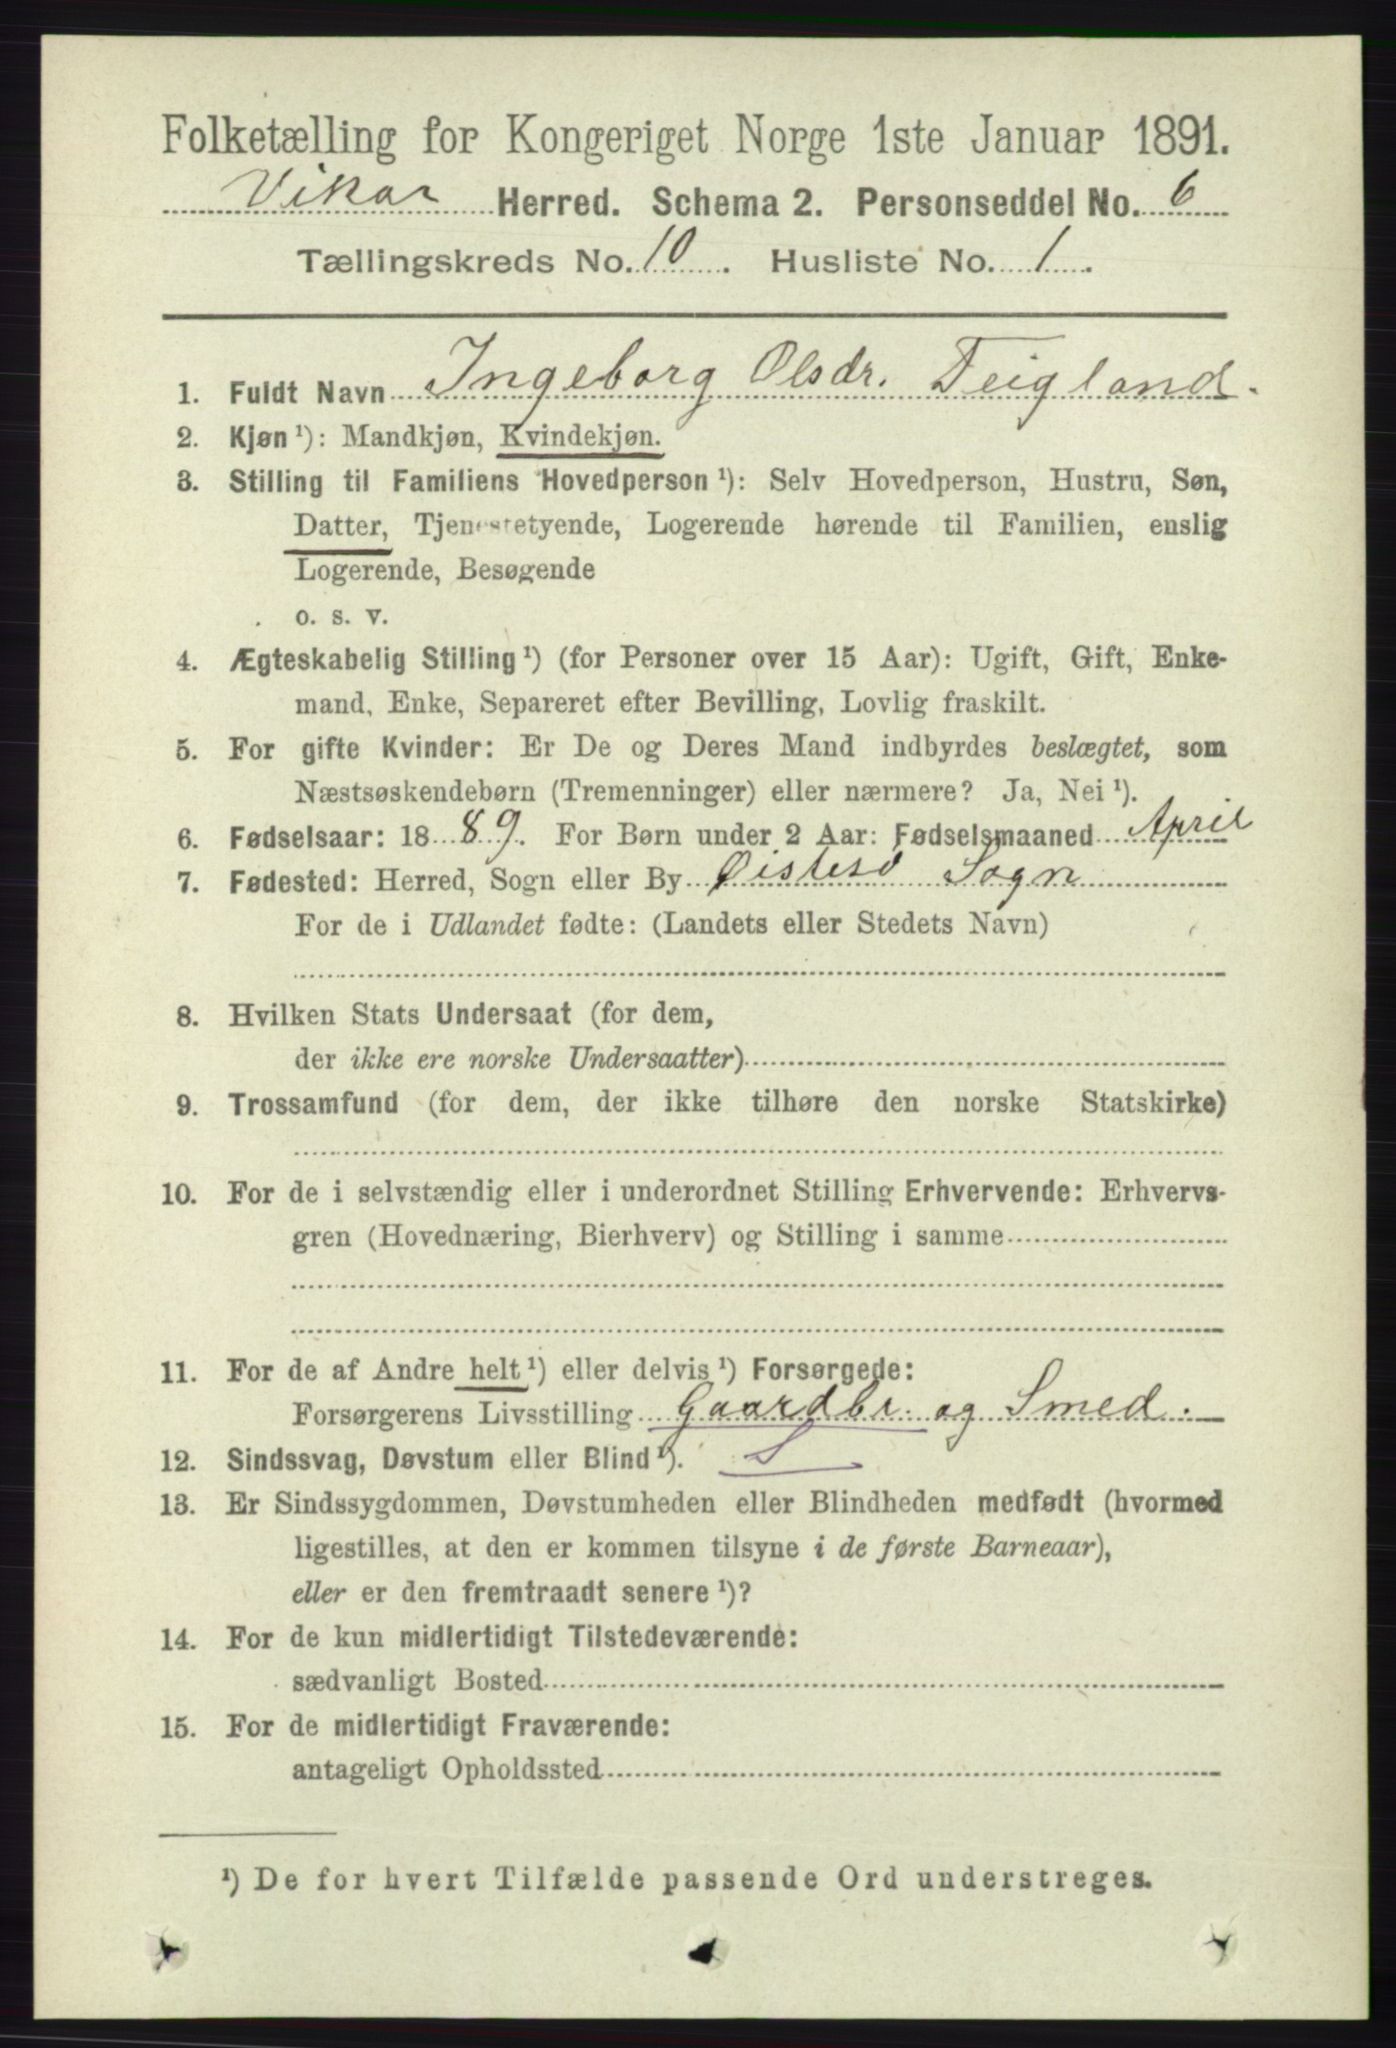 Folketælling for Kongeriget Norge 1ste Januar 1891.
Vikør Herred. Schema 2. Personseddel No. 6
Tællingskreds No. 10. Husliste No. 1.
1. Fuldt Navn Ingeborg Olsdr. Teigland.
2. Kjøn ¹): Mandkjøn, Kvindekjøn.
3. Stilling til Familiens Hovedperson ¹): Selv Hovedperson, Hustru, Søn,
Datter, Tjenestetyende, Logerende hørende til Familien, enslig
Logerende, Besøgende
o. s. v.
4. Ægteskabelig Stilling ¹) (for Personer over 15 Aar): Ugift, Gift, Enke-
mand, Enke, Separeret efter Bevilling, Lovlig fraskilt.
5. For gifte Kvinder: Er De og Deres Mand indbyrdes beslægtet, som
Næstsøskendebørn (Tremenninger) eller nærmere? Ja, Nei ¹).
6. Fødselsaar: 1889. For Børn under 2 Aar: Fødselsmaaned April
7. Fødested: Herred, Sogn eller By Øistesø Sogn
For de i Udlandet fødte: (Landets eller Stedets Navn)
8. Hvilken Stats Undersaat (for dem,
der ikke ere norske Undersaatter)
9. Trossamfund (for dem, der ikke tilhøre den norske Statskirke)
10. For de i selvstændig eller i underordnet Stilling Erhvervende: Erhvervs-
gren (Hovednæring, Bierhverv) og Stilling i samme
11. For de af Andre helt ¹) eller delvis ¹) Forsørgede:
Forsørgerens Livsstilling Gaardbr. og Smed.
12. Sindssvag, Døvstum eller Blind ¹). S
13. Er Sindssygdommen, Døvstumheden eller Blindheden medfødt (hvormed
ligestilles, at den er kommen tilsyne i de første Barneaar),
eller er den fremtraadt senere ¹)?
14. For de kun midlertidigt Tilstedeværende:
sædvanligt Bosted
15. For de midlertidigt Fraværende:
antageligt Opholdssted
¹) De for hvert Tilfælde passende Ord understreges.